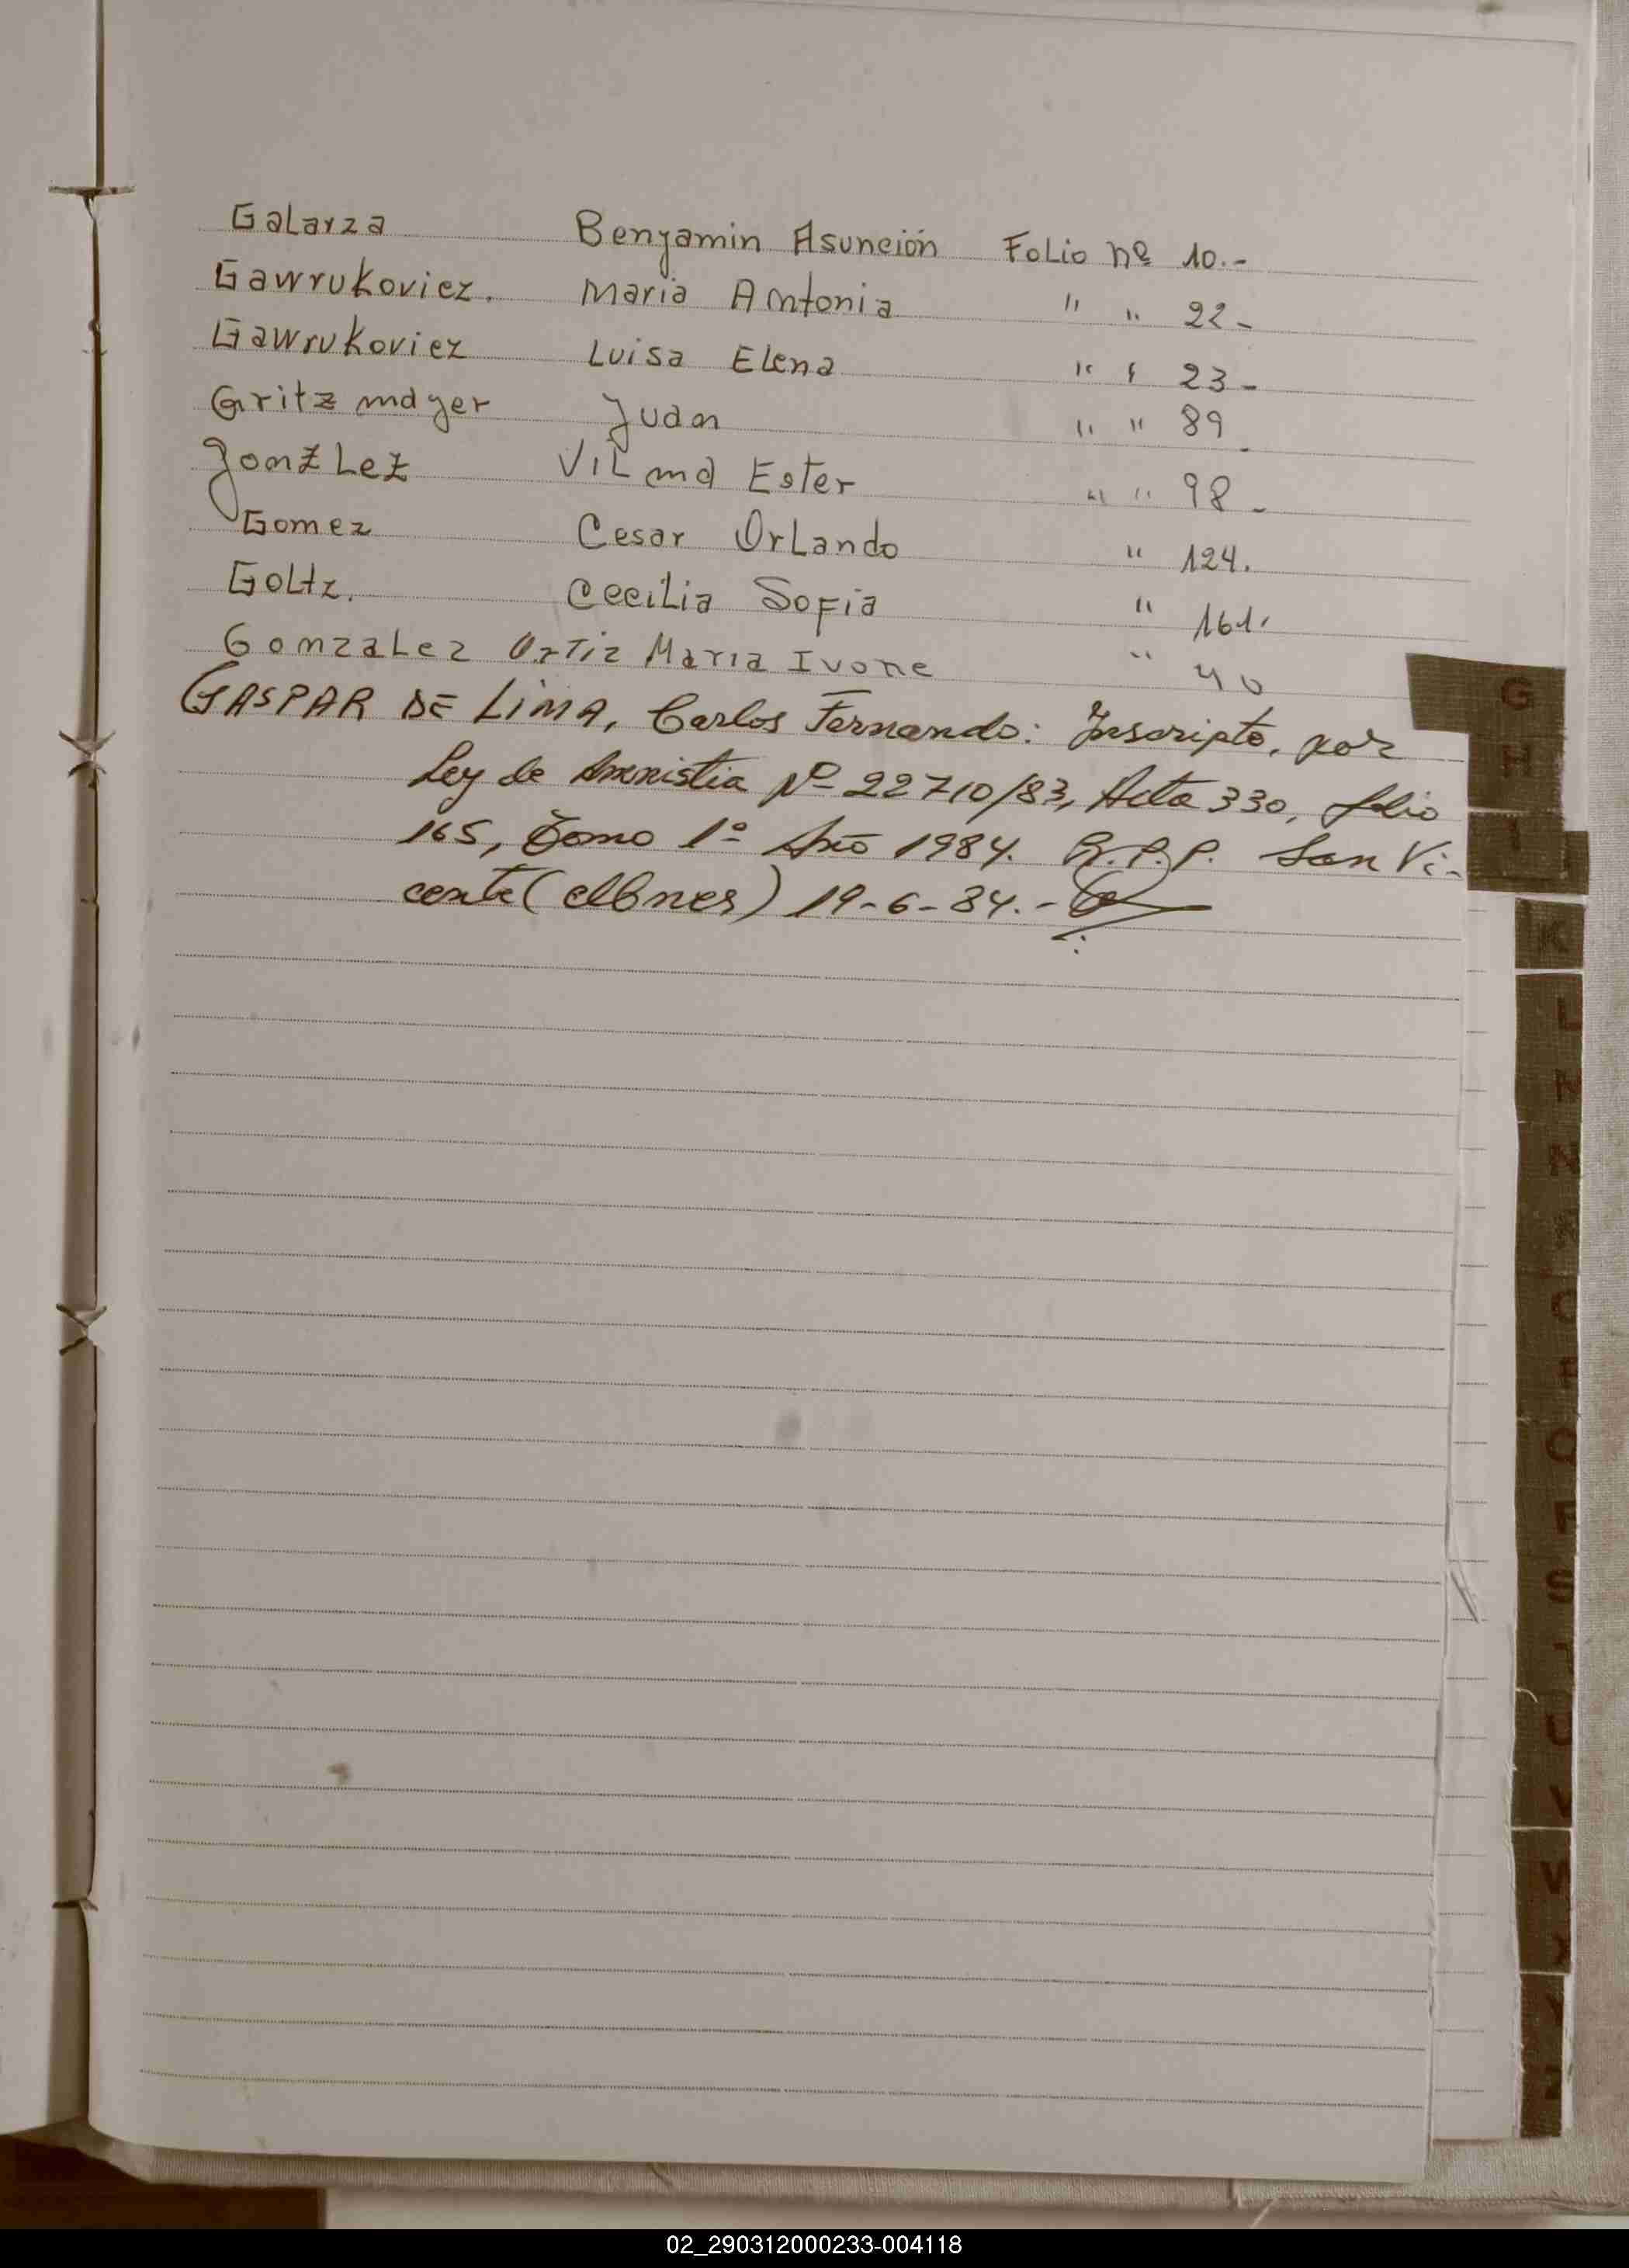 Galarza Benjamin Asunción Folio nº 10.-
Gawrukoviez. Maria Antonia " " 22-
Gawrukoviez Luisa Elena " " 23-
Gritzmayer Juan " " 89-
Gonzlez Vilma Ester " " 98-
Gomez Cesar Orlando " 124.
Goltz. Cecilia Sofia " 161.
Gonzalez Ortiz Maria Ivone " 40
GASPAR DE LIMA, Carlos Fernando: Inscripto, por
Ley de Amnistia Nº 22710/83, Acta 330, folio
165, Tomo 1º Año 1984. R.P.P. San Vi-
cente (Mnes) 19-6-84.-
G
H
I
K
L
M
N
Ñ
O
P
Q
R
S
T
U
V
W
X
Y
Z
02_290312000233-004118